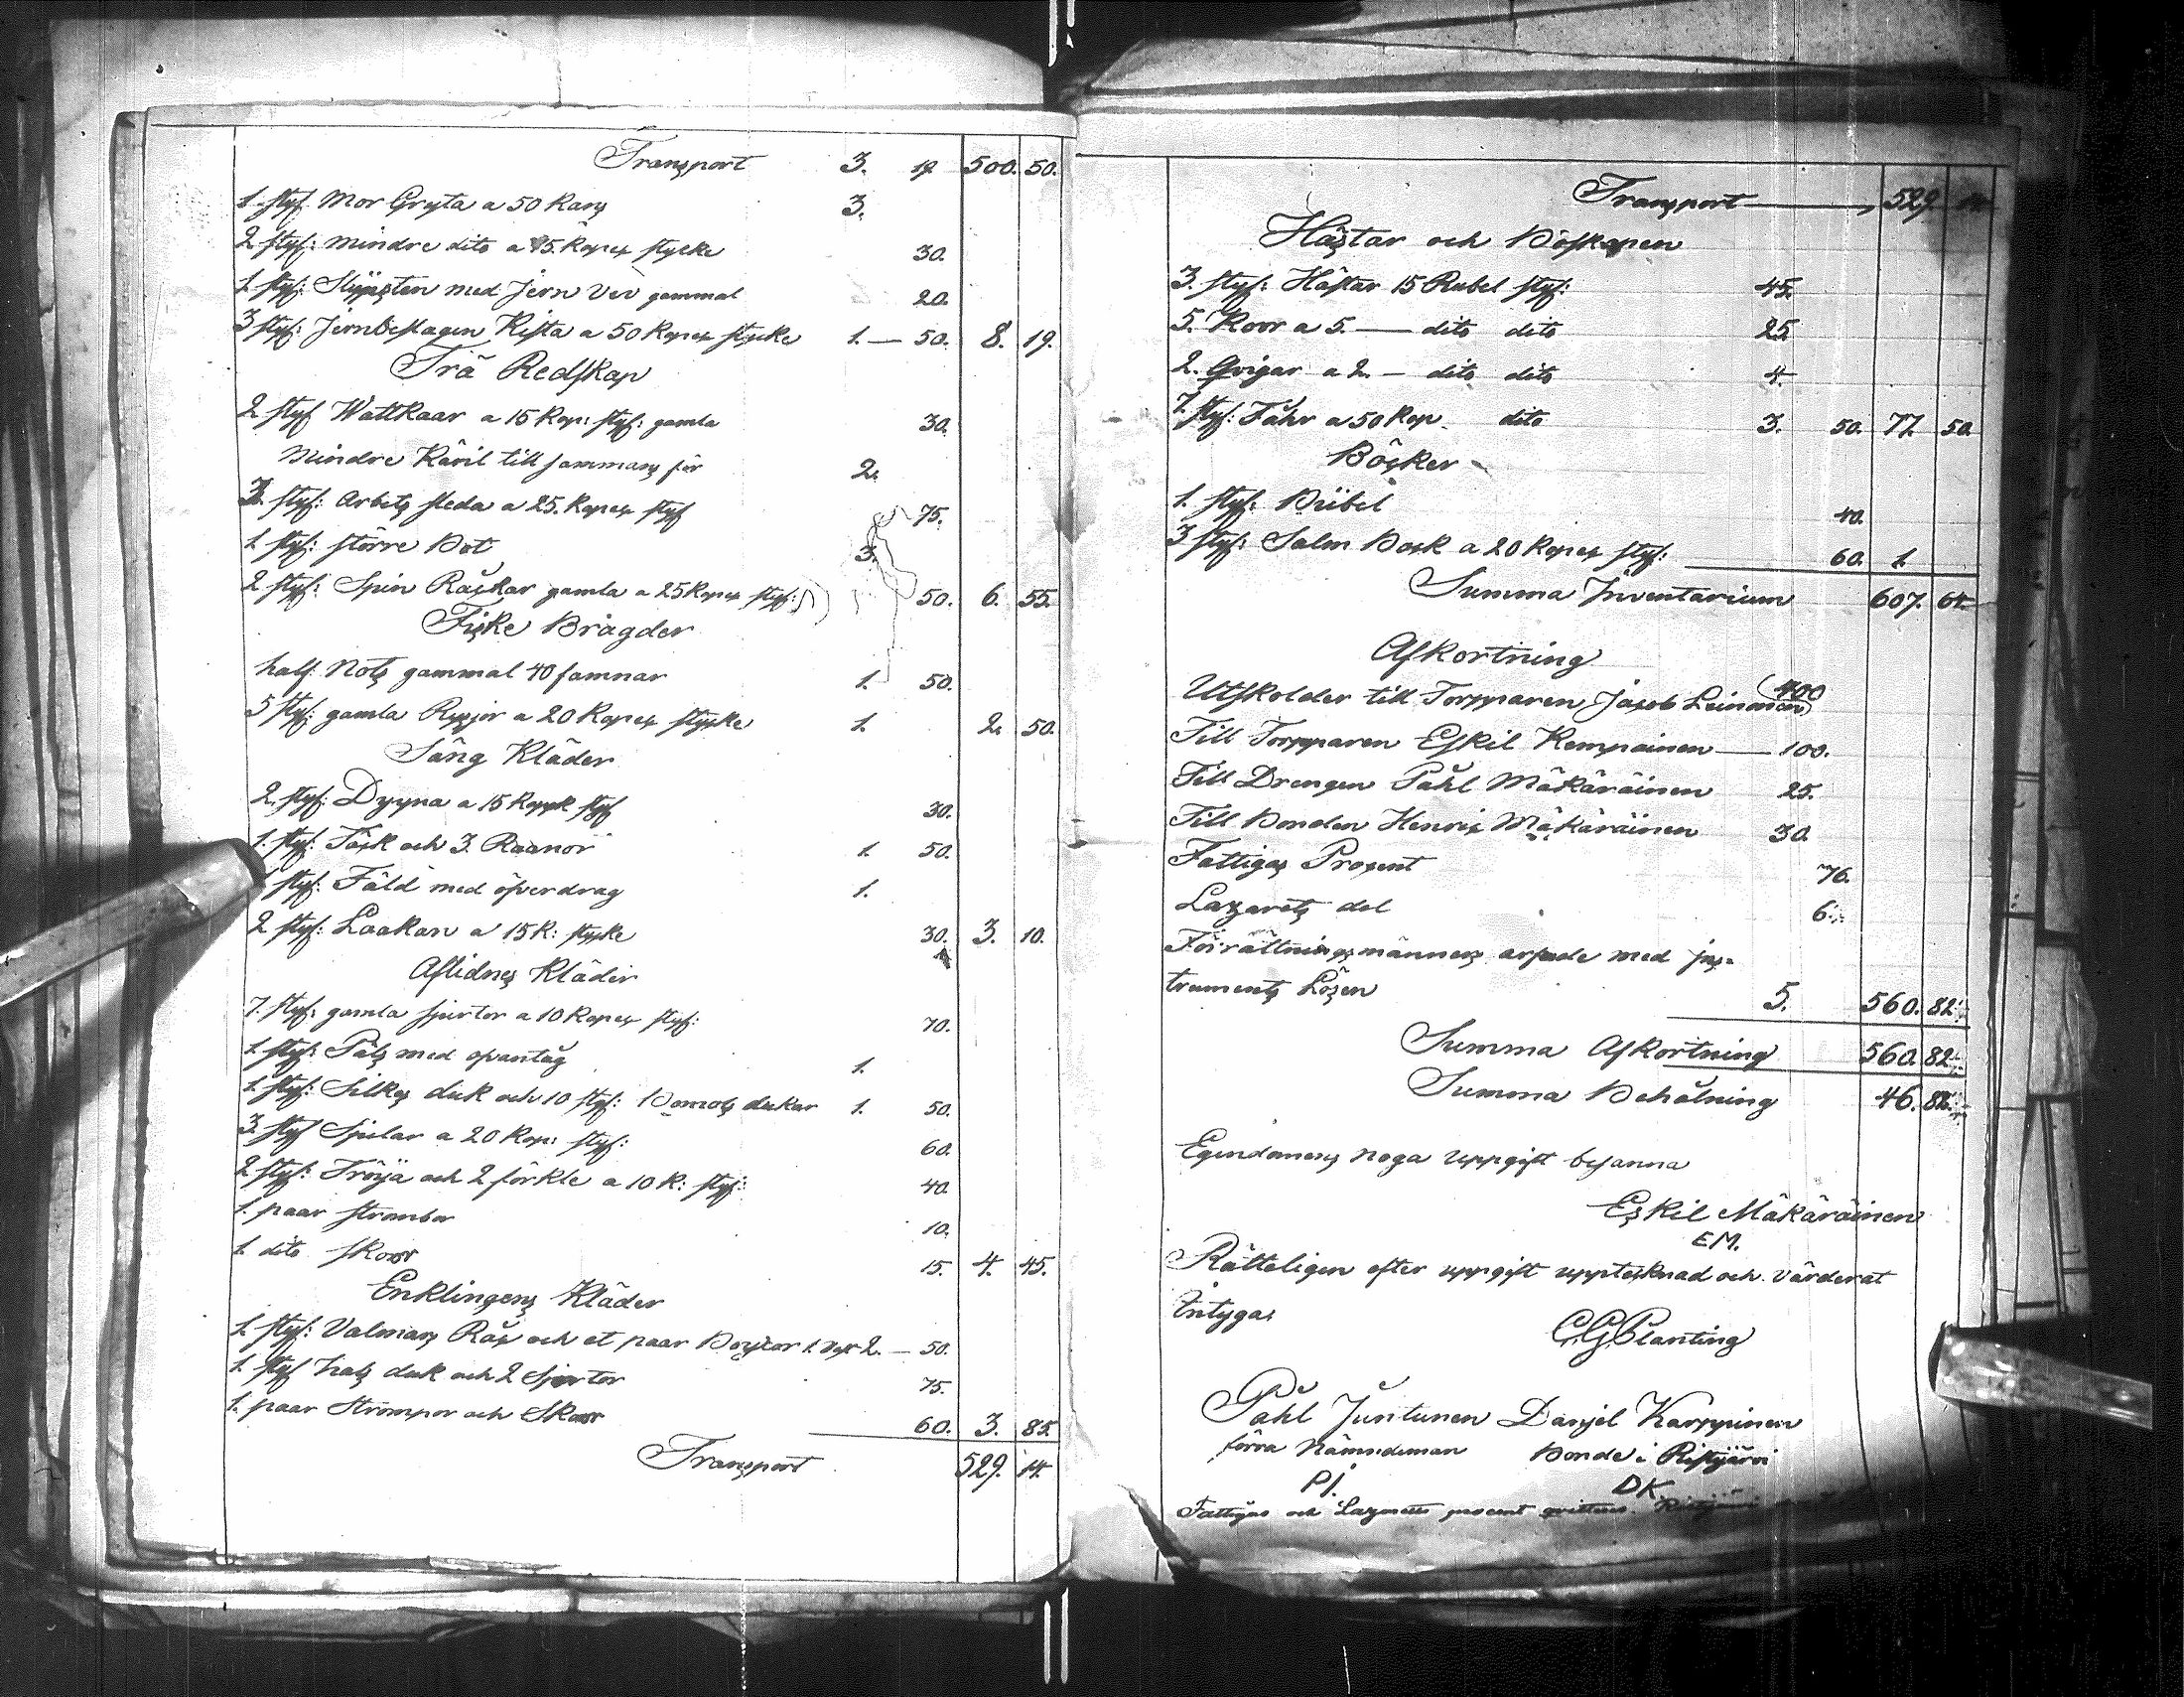 Transport 3. 19 500. 50.
1. styf. Mor Gryta a 50 Kans 3.
2 styf: mindre dito a 15. Kopex stycke 30.
1. styf: Slijpsten med Jern Vev gammal 20.
3 styf: Jernbeslagen Kista a 50 Kopex stycke 1. — 50. 8. 19.
Trä Redskap
2 styf Wattkaar a 15 Kop: styf: gamla 30.
Mindre Käril till sammans för 2.
3. styf: Arbets sleda a 25. Kopex styf 75.
1 styf: större Bot 3.
2 styf: Spin Råckar gamla a 25 Kopex styf: 50. 6. 55.
Fiske Brägder
half Nots gammal 40 famnar 1. 50.
5 styf: gamla Rysjor a 20 Kopex stycke 1. 2. 50.
Säng Kläder
2. styf: Dyyna a 15 Kopek styf 30.
1. styf: Täck och 3. Raanor 1. 50.
1 styf: Fäld med öfverdrag 1.
2 styf: Laakan a 15 K: stycke 30. 3. 10.
Aflidnes Kläder
7. styf: gamla sjortor a 10 Kopex styf: 70.
1. styf: Päls med ovantåg 1.
1. styf: Silkes duk och 10 styf: Bomols dukar 1. 50.
3. styf Sjolar a 20 Kop: styf: 60.
2 styf: Tröija och 2 förkle a 10 K: styf: 40.
1. paar strombor 10.
1. dito skoor 15. 4. 45.
Enklingens Kläder
1. styf: Valmans Råk och et paar Boxsor 1. Väst 2. — 50.
1. styf hals duk och 2 Sjortor 75.
1. paar Strömpor och Skoor 60. 3. 85.
Transport 529. 14.
Transport 529 14
Hästar och Boskapen
3. styf: Hästar 15 Rubel styf: 45.
5. Koor a 5. — dito dito 25.
2. Qvigar a 2. — dito dito 4.
7. styf: Fåhr a 50 Kop. dito 3. 50. 77. 50.
Böcker
1. styf: Biibel 40.
3 styf: Salm Bok a 20 Kopex styf: 60. 1.
Summa Inventarium 607. 64.
Afkortning
Utskolder till Torpparen Jacob Leinonen 400
Till Torpparen Eskil Kempainen — 100.
Till Drengen Påhl Mäkäräinen 25.
Till Bonden Henrix Mäkäräinen 30.
Fattigas Procent 76.
Lazarets del 6.
Förrättningsmännens arfvode med Jns=
truments Lösen 5. 560. 82.
Summa Afkortning 560. 82.
Summa Behålning 46. 82.
Egendomens noga uppgift besanna
Eskil Mäkäräinen
EM.
Rätteligen efter uppgift upptecknad och värderat
Intygar
C.G. Planting
Påhl Juntunen Danjel Karppinen
förra Nämndeman Bonde i Ristijärvi
PJ. DK
Fattigas och Lazaretts procent qvitteras. Ristijärvi